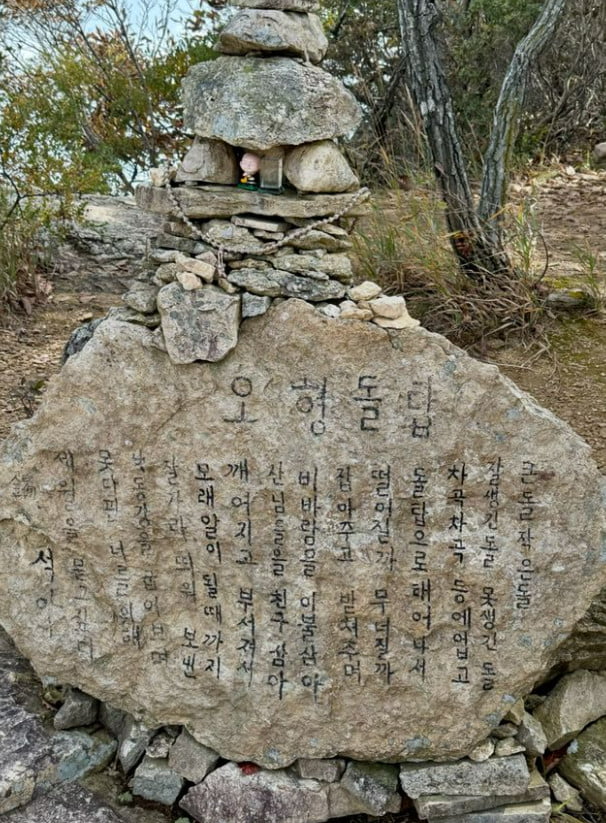 오형돌탑
큰돌작은돌
잘생긴돌 못생긴 돌
차곡차곡 등에업고
돌탑으로태어나서
떨어질까 무너질까
잡아주고 받쳐주며
비바람을 이불삼아
산님들을 친구삼아
깨여지고 부서져서
모래알이 될때까지
잘가라 띄워 보낸
낮동강을 굽어보며
못다핀 너를위해
세월을 묻고싶다
석아